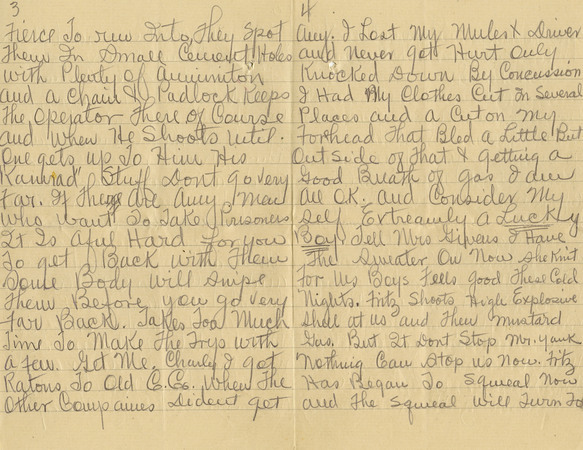 3
Fierce To run Into, They Spot
Them In Small Cement Holes
with Plenty of Amunition
and a Chain & Padlock Keeps
The Operator There of Course
and when He Shoots until
One gets up To Him His
Kamrad Stuff Dont go very
Far. If There are Any men
who want To Take Prisoners
It Is Aful Hard For you
To get Back with Them
Some Body will Snipe
Them Before you go very
Far Back. Takes Too Much
Time To Make The Trips with
a few. Get Me. Charly I got
Rations To Old G. Co. when The
Other Compaines Dident get
4
Any. I Lost My Mules & Driver
and Never gott Hurt Only
Knocked Down By Concussion
I Had My Clothes Cut In Several
Places and a Cut on My
Forhead That Bled a Little But
Outside of That & getting a
Good Breath of gas I am
All O.K. and Consider My
self Extreamly a Lucky
Boy Tell Mrs Givens I Have
The Sweater On Now She Knit
For Us Boys Feels good These Cold
Nights. Fritz Shoots High Explosive
Shell at us and Then mustard
Gas. But It Dont Stop Mr. yank
Nothing Can Stop us Now. Fritz
Has Began To Squeal Now
and The Squeal will Turn To